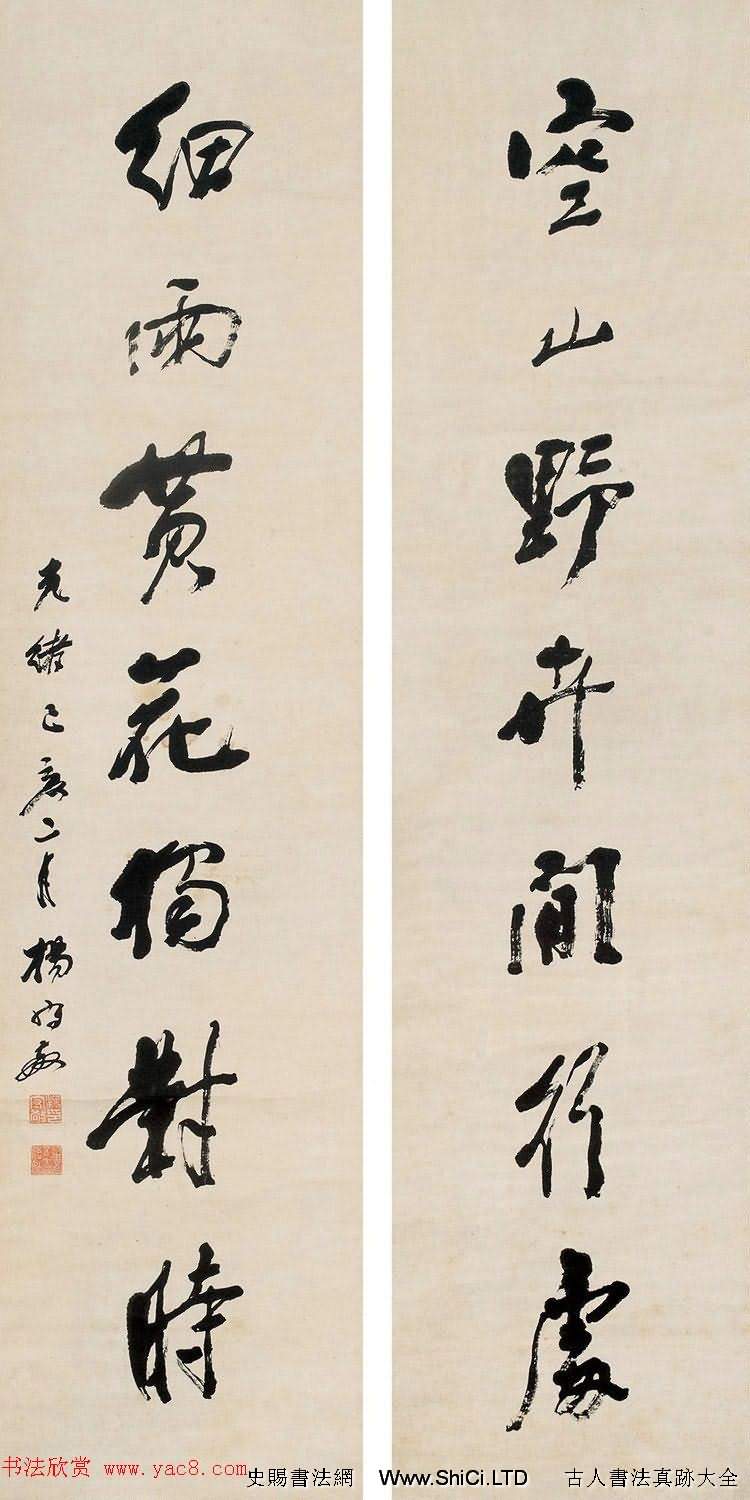 空山野卉閒行處
細雨黄花獨對時
光緒己亥二月楊守敬
书法欣赏 www.yac8.com
史賜書法網 Www.ShiCi.LTD 古人書法真跡大全